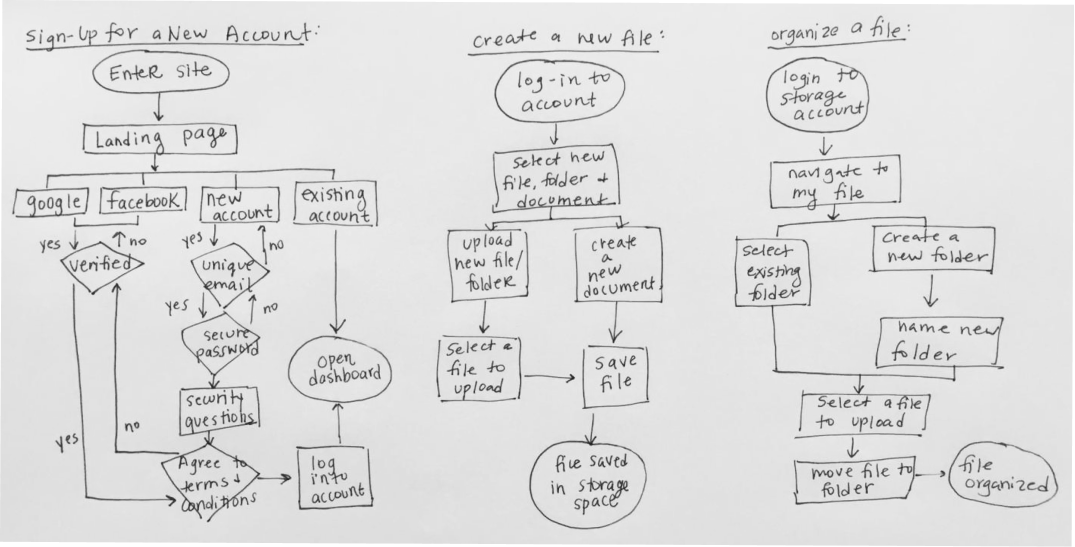 Sign-Up for a New Account:
Enter site
Landing page
google
facebook
new
account
existing
account
yes
no
yes
no
verified
unique
email
yes
no
secure
password
open
dashboard
security
questions
yes
no
Agree to
terms +
conditions
log
into
account
create a new file:
log-in to
account
select new
file, folder +
document
upload
new file/
folder
create
a
new
document
select a
file to
upload
save
file
file saved
in storage
space
organize a file:
login to
storage
account
navigate to
my file
select
existing
folder
create a
new folder
name new
folder
select a file
to upload
move file to
folder
file
organized